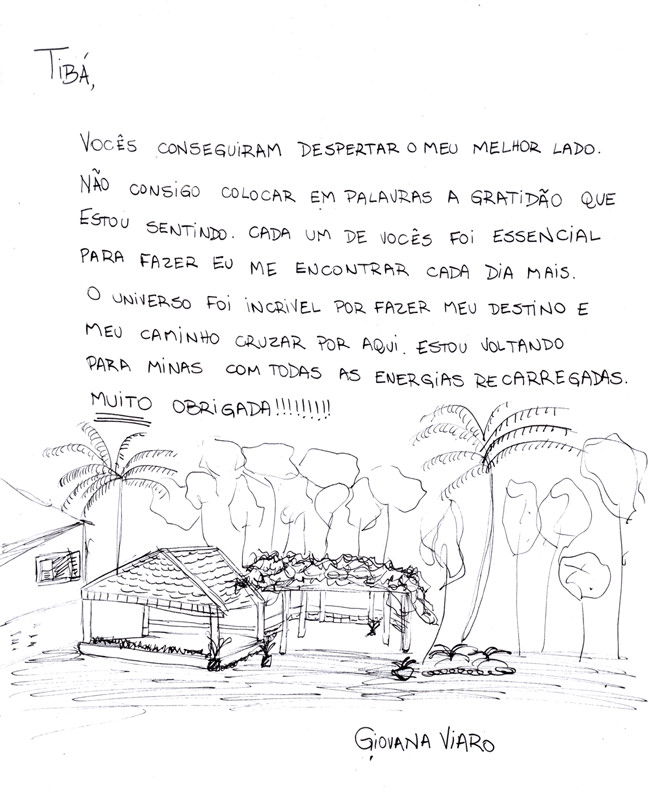 TIBÁ,
VOCÊS CONSEGUIRAM DESPERTAR O MEU MELHOR LADO.
NÃO CONSIGO COLOCAR EM PALAVRAS A GRATIDÃO QUE
ESTOU SENTINDO. CADA UM DE VOCÊS FOI ESSENCIAL
PARA FAZER EU ME ENCONTRAR CADA DIA MAIS.
O UNIVERSO FOI INCRIVEL POR FAZER MEU DESTINO E
MEU CAMINHO CRUZAR POR AQUI. ESTOU VOLTANDO
PARA MINAS COM TODAS AS ENERGIAS RECARREGADAS.
MUITO OBRIGADA!!!!!!!!!
GIOVANA VIARO